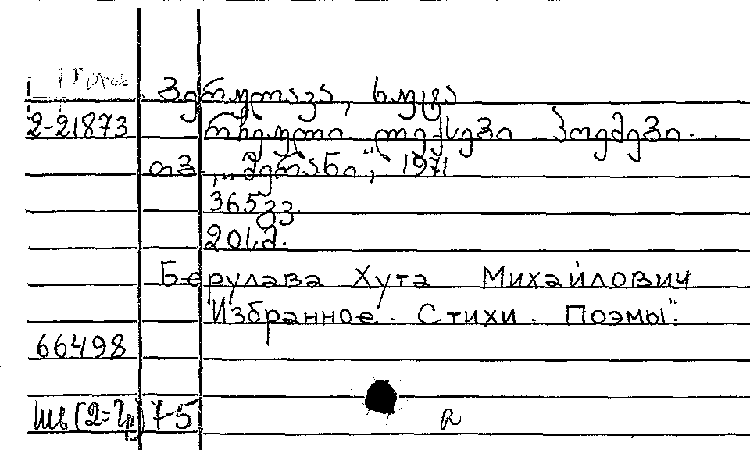 ბერულავა, ხუტა
2-21873 რჩეული ლექსები პოემები.
თბ. „მერანი", 1971
365გვ.
20სმ.
Берулава Хута Михайлович
"Избранное. Стихи. Поэмы".
66498
7-5